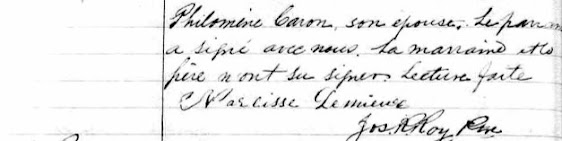 Philomène Caron, son épouse. Le parrain
a signé avec nous. La marraine et le
père n'ont su signer. Lecture faite
Narcisse Lemieux
Jos. Roy Ptre